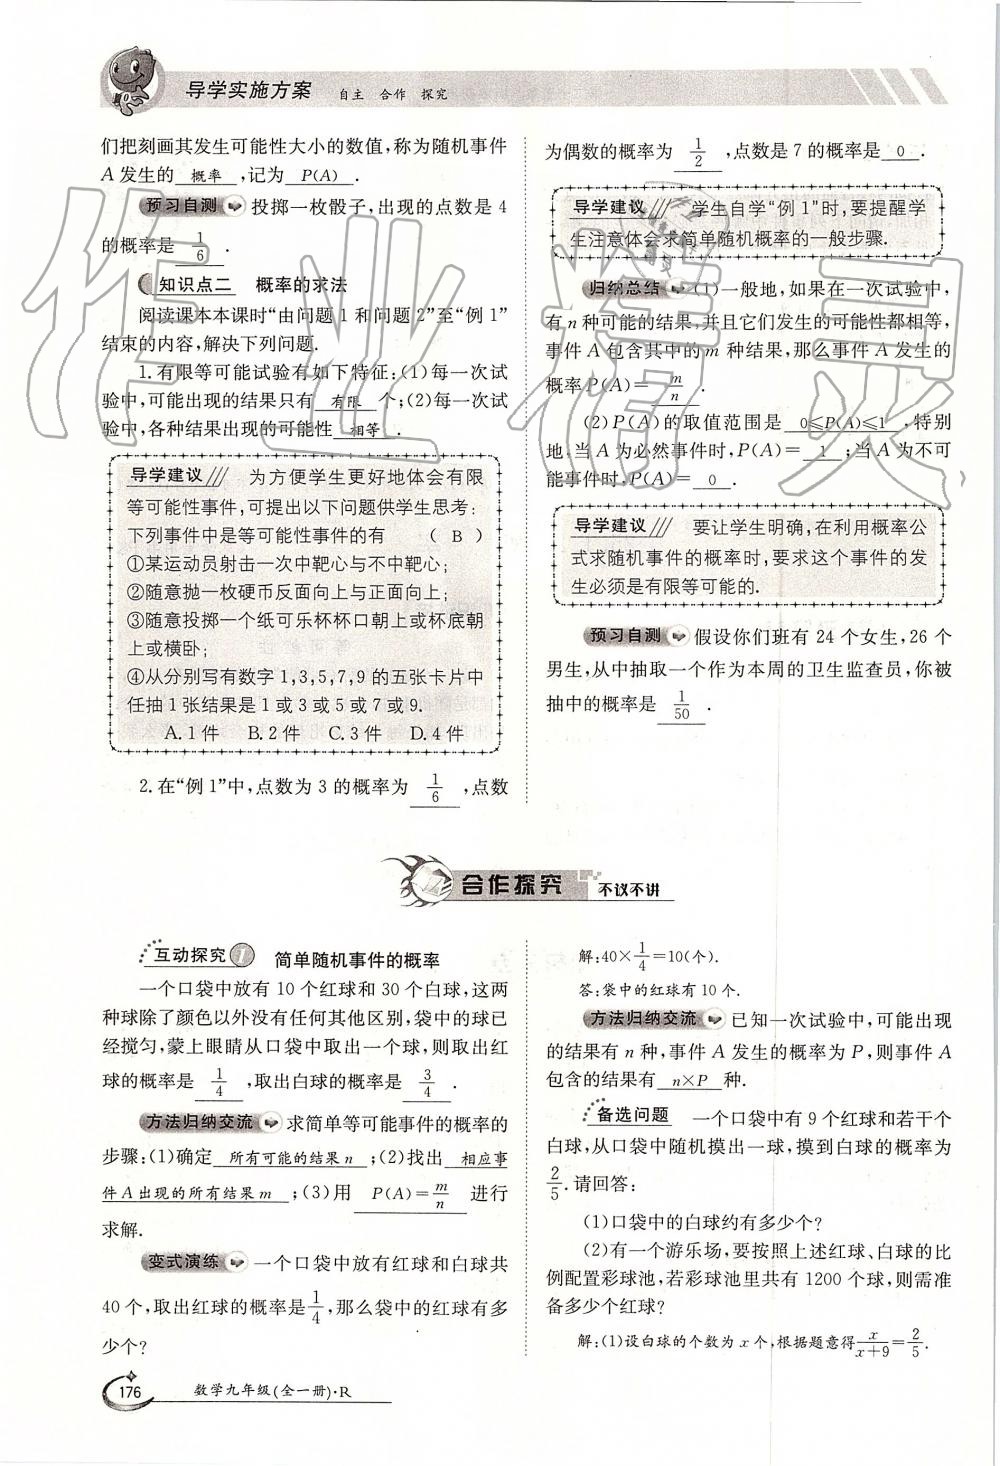 导学实施方案 自主 合作 探究
们把刻画其发生可能性大小的数值,称为随机事件
A发生的 概率 ,记为 P(A) .
预习自测 投掷一枚骰子,出现的点数是4
的概率是 1/6 .
知识点二 概率的求法
阅读课本本课时“由问题1和问题2”至“例1”
结束的内容,解决下列问题.
1.有限等可能试验有如下特征:(1)每一次试
验中,可能出现的结果只有 有限 个;(2)每一次试
验中,各种结果出现的可能性 相等 .
导学建议 为方便学生更好地体会有限
等可能性事件,可提出以下问题供学生思考:
下列事件中是等可能性事件的有 ( B )
①某运动员射击一次中靶心与不中靶心;
②随意抛一枚硬币反面向上与正面向上;
③随意投掷一个纸可乐杯杯口朝上或杯底朝
上或横卧;
④从分别写有数字1,3,5,7,9的五张卡片中
任抽1张结果是1或3或5或7或9.
A.1件 B.2件 C.3件 D.4件
2.在“例1”中,点数为3的概率为 1/6 ,点数
为偶数的概率为 1/2 ,点数是7的概率是 0 .
导学建议 学生自学“例1”时,要提醒学
生注意体会求简单随机概率的一般步骤.
归纳总结 (1)一般地,如果在一次试验中,
有n种可能的结果,并且它们发生的可能性都相等,
事件A包含其中的m种结果,那么事件A发生的
概率P(A)= m/n .
(2)P(A)的取值范围是 0≤P(A)≤1 ,特别
地,当A为必然事件时,P(A)= 1 ;当A为不可
能事件时,P(A)= 0 .
导学建议 要让学生明确,在利用概率公
式求随机事件的概率时,要求这个事件的发
生必须是有限等可能的.
预习自测 假设你们班有24个女生,26个
男生,从中抽取一个作为本周的卫生监查员,你被
抽中的概率是 1/50 .
合作探究 不议不讲
互动探究1 简单随机事件的概率
一个口袋中放有10个红球和30个白球,这两
种球除了颜色以外没有任何其他区别,袋中的球已
经搅匀,蒙上眼睛从口袋中取出一个球,则取出红
球的概率是 1/4 ,取出白球的概率是 3/4 .
方法归纳交流 求简单等可能事件的概率的
步骤:(1)确定 所有可能的结果n ;(2)找出 相应事
件A出现的所有结果m ;(3)用 P(A)=m/n 进行
求解.
变式演练 一个口袋中放有红球和白球共
40个,取出红球的概率是1/4,那么袋中的红球有多
少个?
解:40×1/4=10(个).
答:袋中的红球有10个.
方法归纳交流 已知一次试验中,可能出现
的结果有n种,事件A发生的概率为P,则事件A
包含的结果有 n×P 种.
备选问题 一个口袋中有9个红球和若干个
白球,从口袋中随机摸出一球,摸到白球的概率为
2/5.请回答:
(1)口袋中的白球约有多少个?
(2)有一个游乐场,要按照上述红球、白球的比
例配置彩球池,若彩球池里共有1200个球,则需准
备多少个红球?
解:(1)设白球的个数为x个,根据题意得x/(x+9)=2/5.
176 数学九年级(全一册)·R
作业精灵